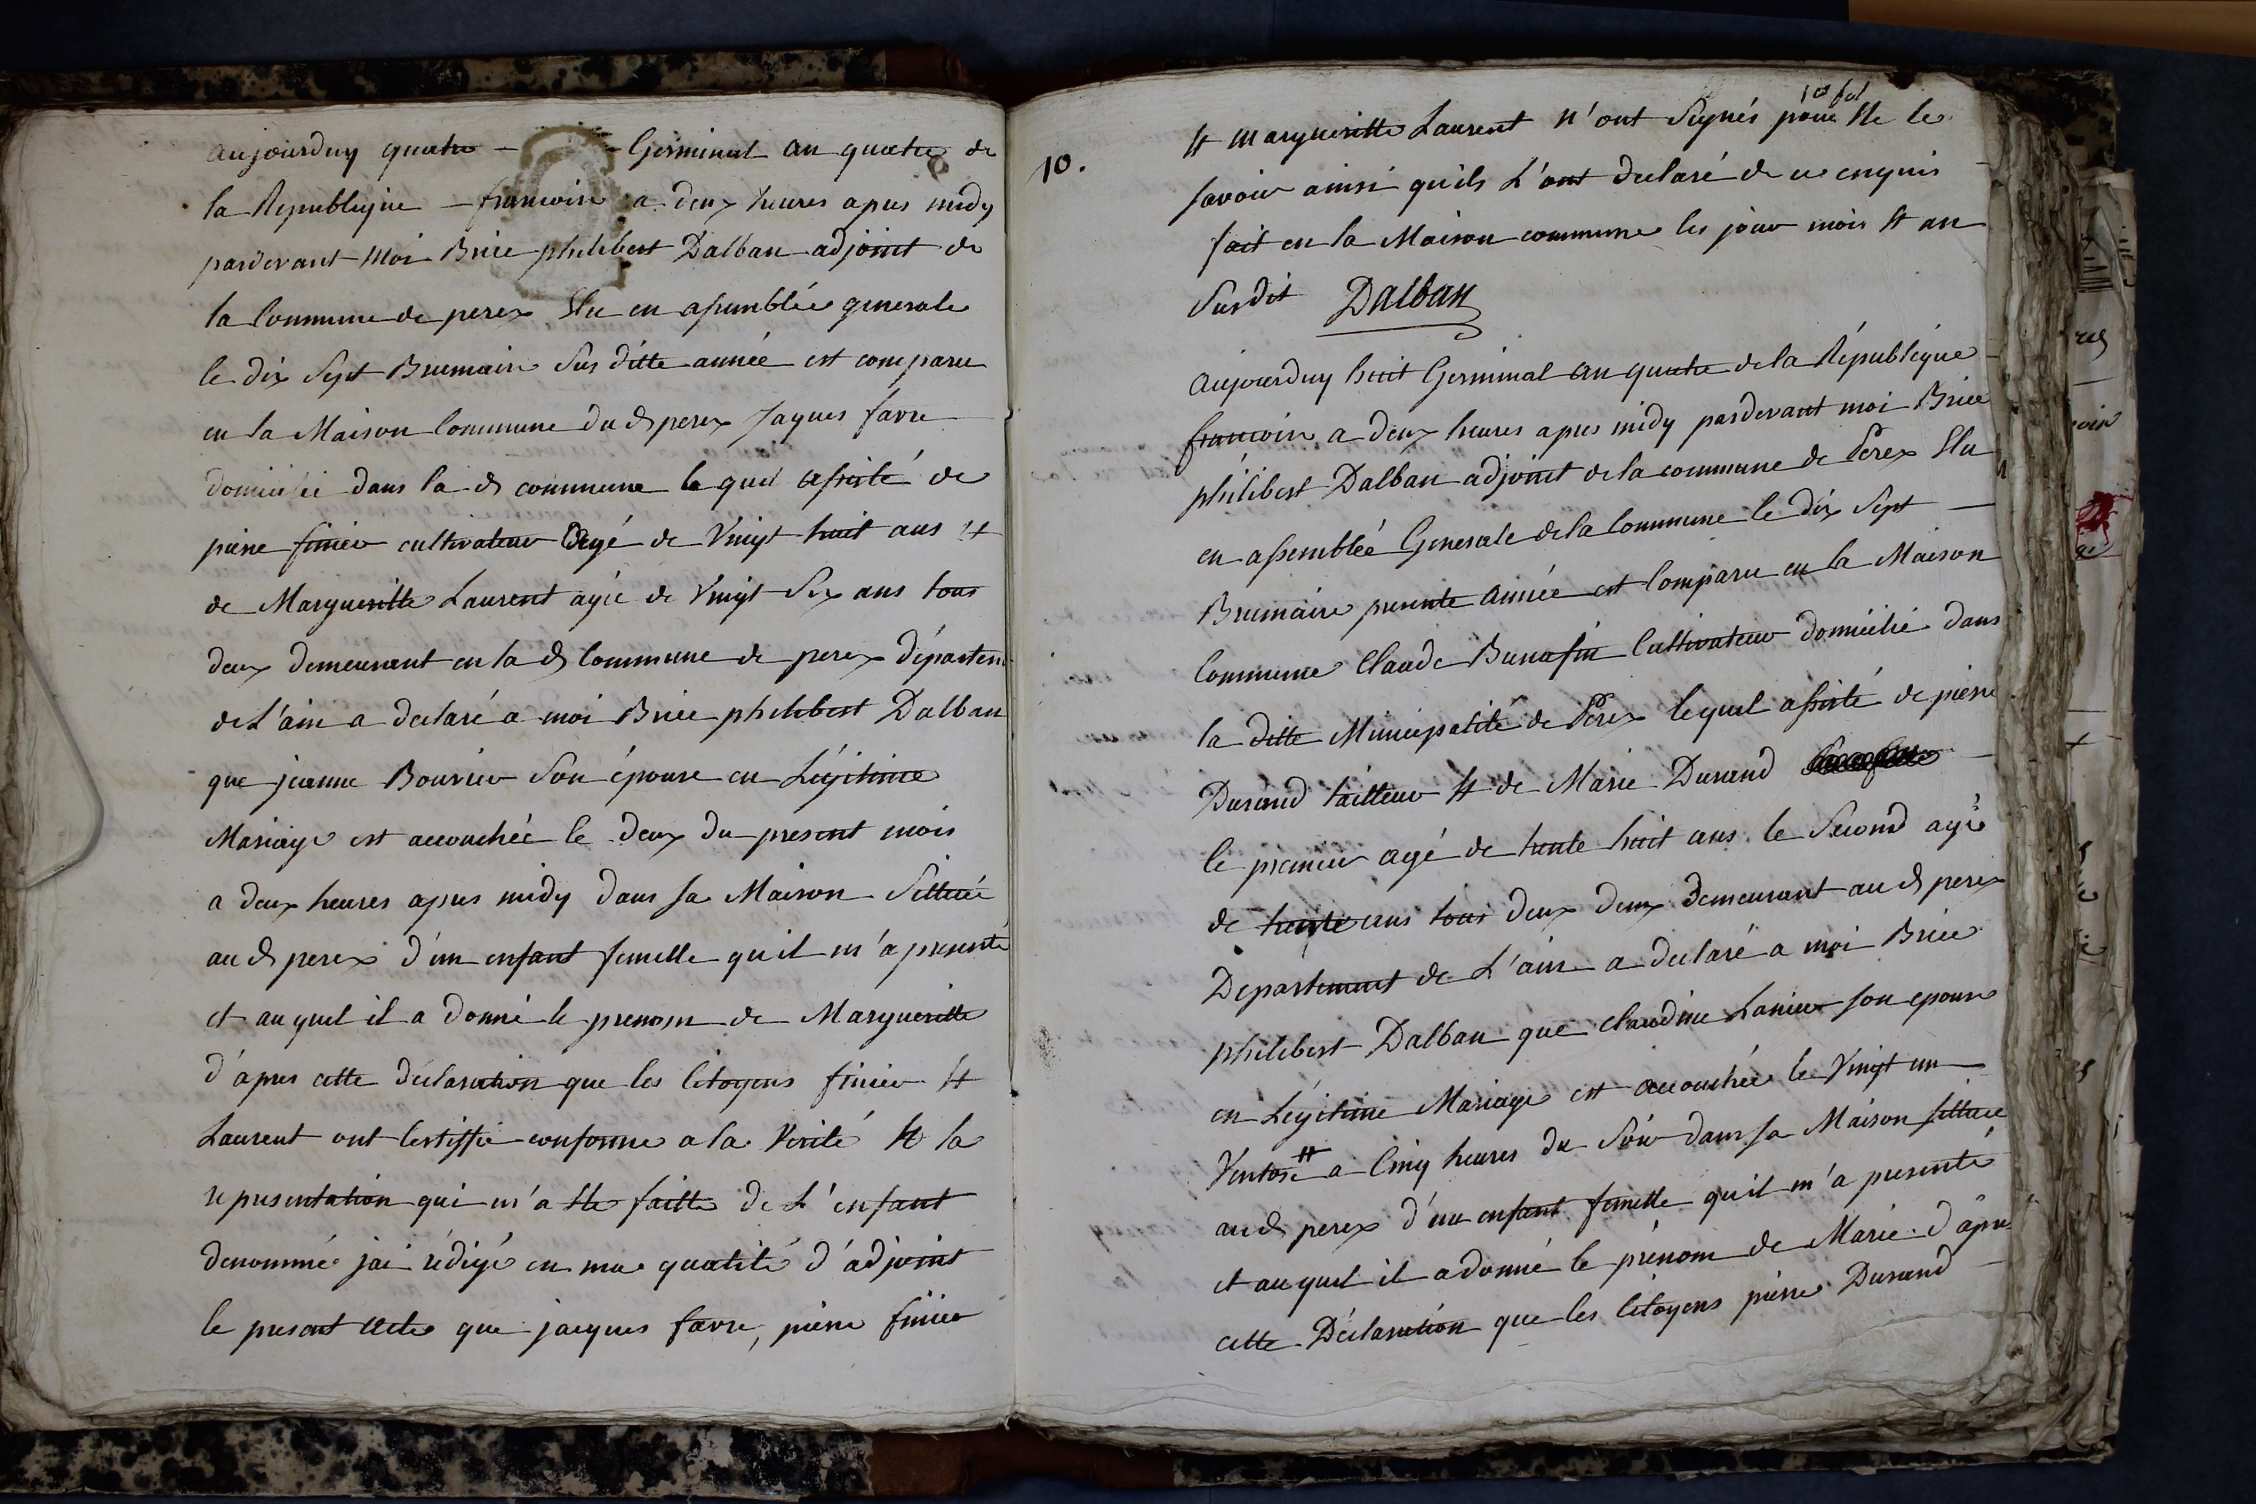 aujourduy quatre — Germinal an quatre de
la Republique — francoise a deux heures apres midy
pardevant moi Brice philibert Dalban adjoint de
la Commune de perex Elu en assemblée generale
le dix Sept Brumaire Sus ditte année est comparu
en la Maison Commune du d perex Jaques favre
domicilié dans la d commune le quel assisté de
pierre finier cultivateur agé de Vingt huit ans et
de Margueritte Laurent agée de Vingt Six ans tous
deux demeurant en la d Commune de perex départem
de L'ain a declaré a moi Brice philibert Dalban
que jeanne Bouvier Son épouse en Légitime
Mariage est accouchée le deux du present mois
a deux heures apres midy dans sa Maison Sittuée
au d perex d'un enfant femelle qu'il m'a presenté
et au quel il a donné le prenom de Margueritte
d'apres cette declaration que les Citoyens finier et
Laurent ont Certiffié conforme a la Verité et la
representation qui m'a ete faitte de L'enfant
denommé jai rédigé en ma qualité d'adjoint
le present acte que jacques favre, pierre finier
10 fol
10.
et margueritte Laurent n'ont Signés pour ne le
savoir ainsi qu'ils L'ont declaré de ce enquis
fait en la Maison commune les jour mois et an
Susdit Dalban
aujourduy huit Germinal an quatre de la République
francoise a deux heures apres midy pardevant moi Brice
philibert Dalban adjoint de la commune de Perex Elu
en assemblée Generale de la Commune le dix Sept —
Brumaire presente année est Comparu en la Maison
Commune Claude Cultivateur domicilié dans
la ditte Municipalité de Perex le quel assisté de pierre
Durand tailleur et de Marie Durand
le premier agé de trente huit ans le Second agé
de trente ans tous deux deux demeurant au d perex
Departement de L'ain a declaré a moi Brice
philibert Dalban que claudine Lanier son epouse
en Légitime Mariage est accouchée le Vingt un —
Ventose a Cinq heures du Soir dans sa Maison sittuée
au d perex d'un enfant femelle qu'il m'a presenté
et au quel il a donné le prénom de Marie d'apres
cette Déclaration que les Citoyens pierre Durand —